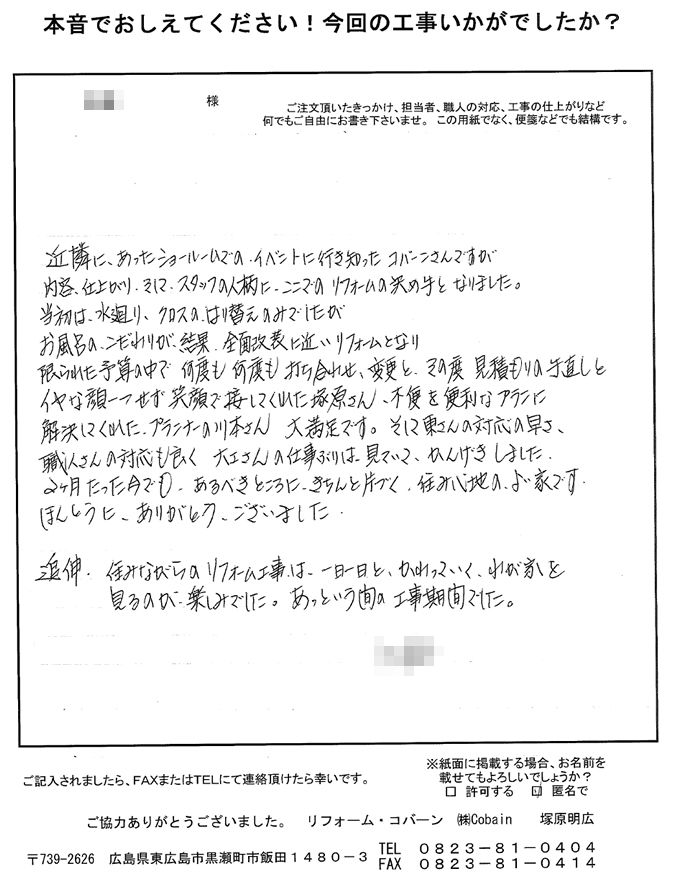 本音でおしえてください！今回の工事いかがでしたか？
様
ご注文頂いたきっかけ、担当者、職人の対応、工事の仕上がりなど
何でもご自由にお書き下さいませ。この用紙でなく、便箋などでも結構です。
近隣に、あったショールームでの、イベントに行き知った コバーンさんですが
内容、仕上がり、そして、スタッフの人柄に、ここでの リフォームの決め手と なりました。
当初は、水廻り、クロスの、はり替えのみでしたが
お風呂の、こだわりが、結果、全面改装に近い リフォームとなり
限られた予算の中で 何度も 何度も 打ち合わせ、変更と、その度 見積もりの手直しと
イヤな顔一つせず 笑顔で 接してくれた 塚原さん、不便を便利なプランに
解決してくれた、プランナーの川本さん 大満足です。そして東さんの対応の早さ、
職人さんの対応も良く 大工さんの仕事ぶりは、見ていて、かんげき しました。
2ヶ月たった今でも、あるべきところに、きちんと片づく、住み心地の、よい家です。
ほんとうに、ありがとう、ございました。
追伸、住みながらの リフォーム工事は、一日一日と、かわっていく、わが家を
見るのが、楽しみでした。あっという間の 工事期間でした。
ご記入されましたら、FAXまたはTELにて連絡頂けたら幸いです。
※紙面に掲載する場合、お名前を
載せてもよろしいでしょうか？
□ 許可する ☑ 匿名で
ご協力ありがとうございました。 リフォーム・コバーン ㈱Cobain 塚原明広
〒739-2626 広島県東広島市黒瀬町市飯田１４８０－３
TEL ０８２３－８１－０４０４
FAX ０８２３－８１－０４１４